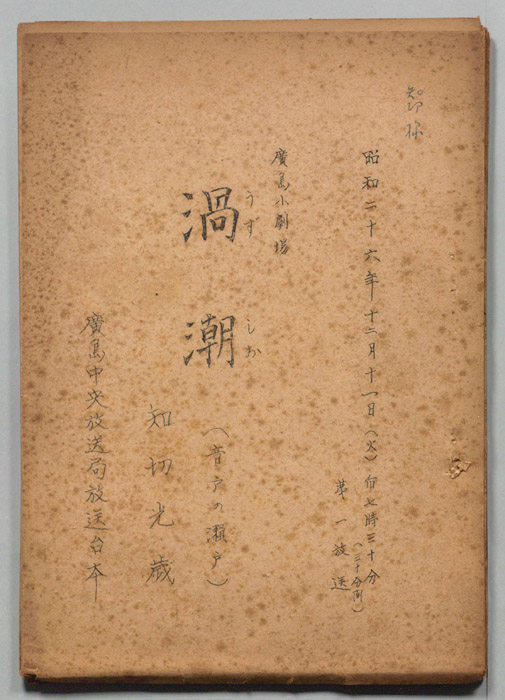 昭和二十六年十二月十一日(火)后七時三十分
(三十分間)
第一放送
廣島小劇場
渦潮
うず
しお
(音戸の瀬戸)
知切光歳
廣島中央放送局放送台本